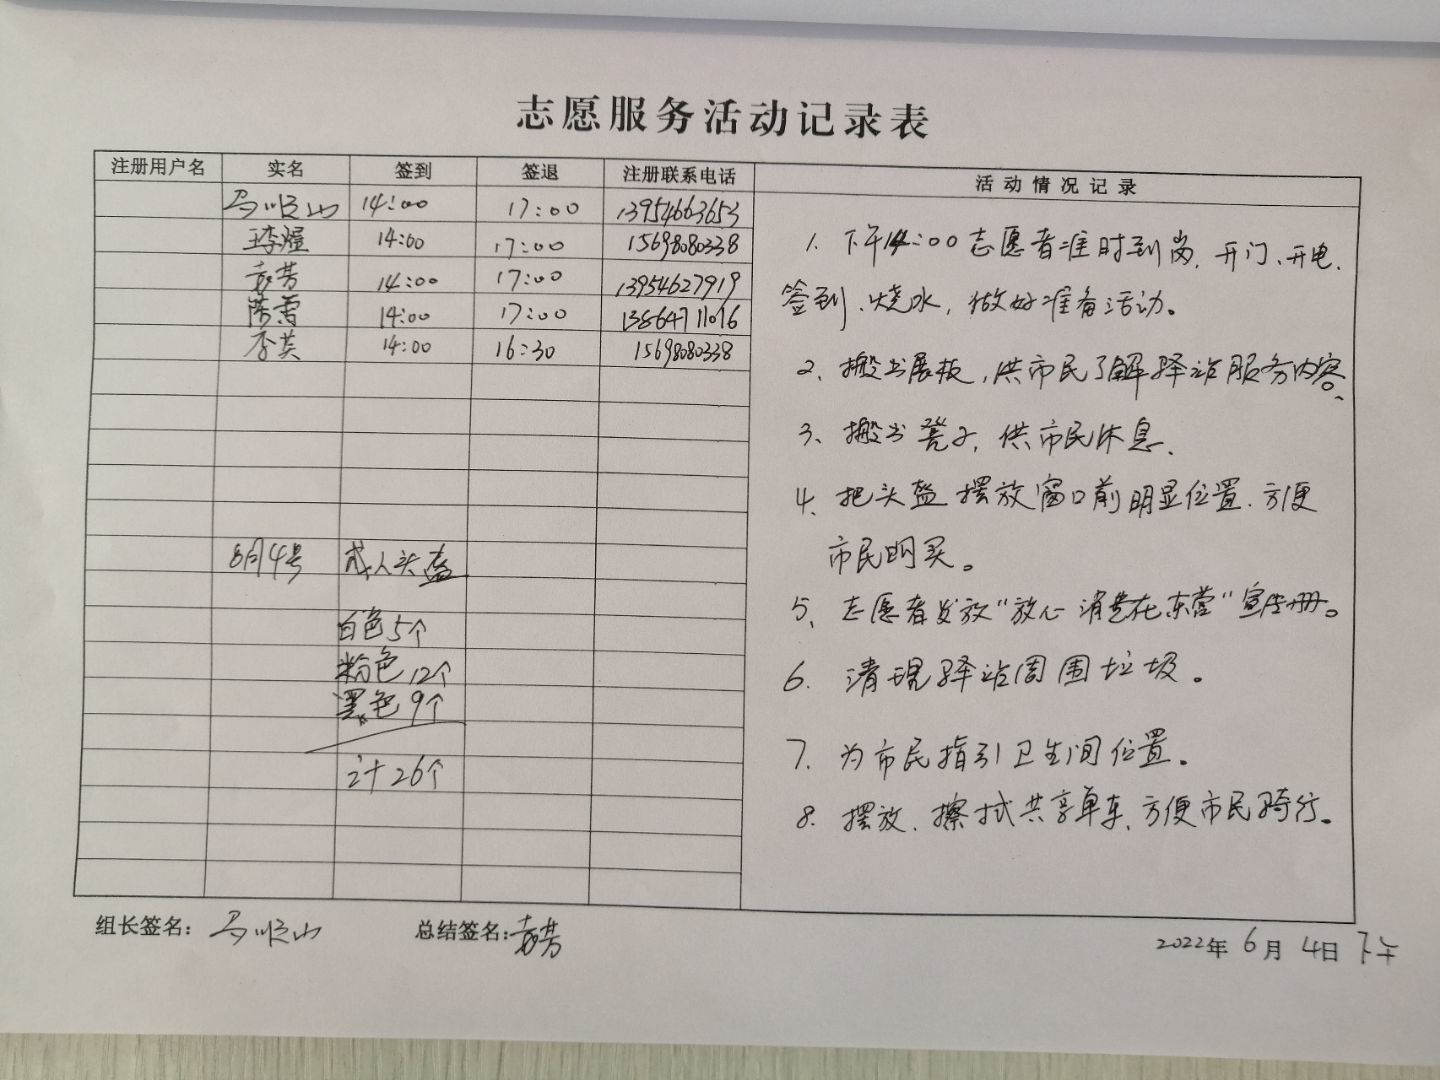 志愿服务活动记录表
注册用户名 实名 签到 签退 注册联系电话 活动情况记录
马顺山 14:00 17:00 13954663653
14:00 17:00 15698080338
袁芳 14:00 17:00 13954627919
陈蕾 14:00 17:00 13864711016
李英 14:00 16:30 15698080338
6月4号 成人头盔
白色5个
粉色12个
黑色9个
计26个
1. 下午14:00志愿者准时到岗, 开门、开电、
签到、烧水, 做好准备活动。
2、搬出展板, 供市民了解驿站服务内容。
3、搬出凳子, 供市民休息.
4、把头盔摆放窗口前明显位置、方便
市民购买。
5、志愿者发放“放心消费在东营”宣传册。
6. 清理驿站周围垃圾。
7. 为市民指引卫生间位置。
8. 摆放、擦拭共享单车、方便市民骑行。
组长签名: 马顺山 总结签名: 袁芳
2022年 6月 4日 下午